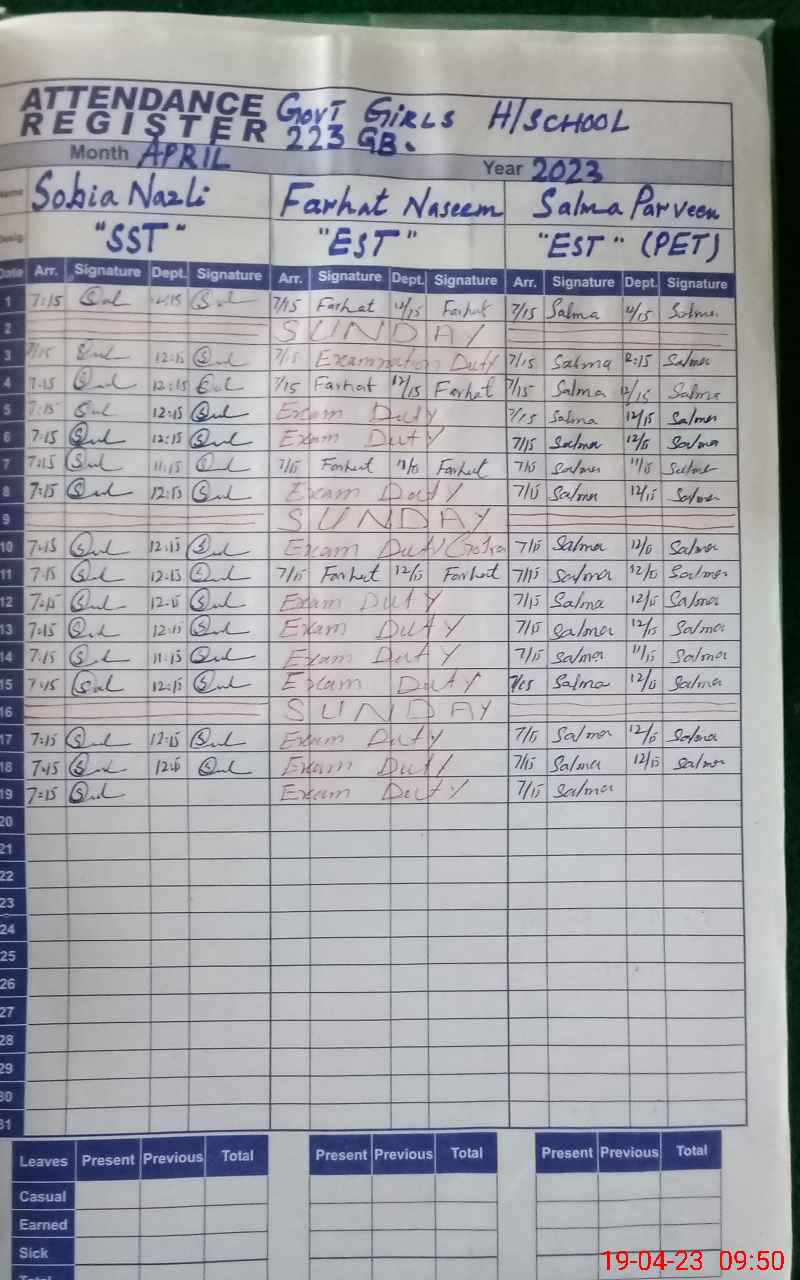 ATTENDANCE REGISTER GOVT GIRLS H/SCHOOL 223 GB.
Month APRIL Year 2023
Name Sobia Nazli Farhat Naseem Salma Parveen
Desig. "SST" "EST" "EST" (PET)
Date Arr. Signature Dept. Signature Arr. Signature Dept. Signature Arr. Signature Dept. Signature
1 7:15 7/15 Farhat 12/15 Farhat 7/15 Salma 12/15 Salma
2 SUNDAY
3 7/15 12:15 7/15 Examination Duty 7/15 Salma 12:15 Salma
4 7:15 12:15 7/15 Farhat 12/15 Farhat 7/15 Salma 12/15 Salma
5 7:15 12:15 Exam Duty 7/15 Salma 12/15 Salma
6 7:15 12:15 Exam Duty 7/15 Salma 12/15 Salma
7 7:15 11:15 7/15 Farhat 11/15 Farhat 7/15 Salma 11/15 Salma
8 7:15 12:15 Exam Duty 7/15 Salma 12/15 Salma
9 SUNDAY
10 7:15 12:15 Exam Duty 7/15 Salma 12/15 Salma
11 7:15 12:15 7/15 Farhat 12/15 Farhat 7/15 Salma 12/15 Salma
12 7:15 12:15 Exam Duty 7/15 Salma 12/15 Salma
13 7:15 12:15 Exam Duty 7/15 Salma 12/15 Salma
14 7:15 11:15 Exam Duty 7/15 Salma 11/15 Salma
15 7:15 12:15 Exam Duty 7/15 Salma 12/15 Salma
16 SUNDAY
17 7:15 12:15 Exam Duty 7/15 Salma 12/15 Salma
18 7:15 12:15 Exam Duty 7/15 Salma 12/15 Salma
19 7:15 Exam Duty 7/15 Salma
20
21
22
23
24
25
26
27
28
29
30
31
Leaves Present Previous Total Present Previous Total Present Previous Total
Casual
Earned
Sick
Total
19-04-23 09:50